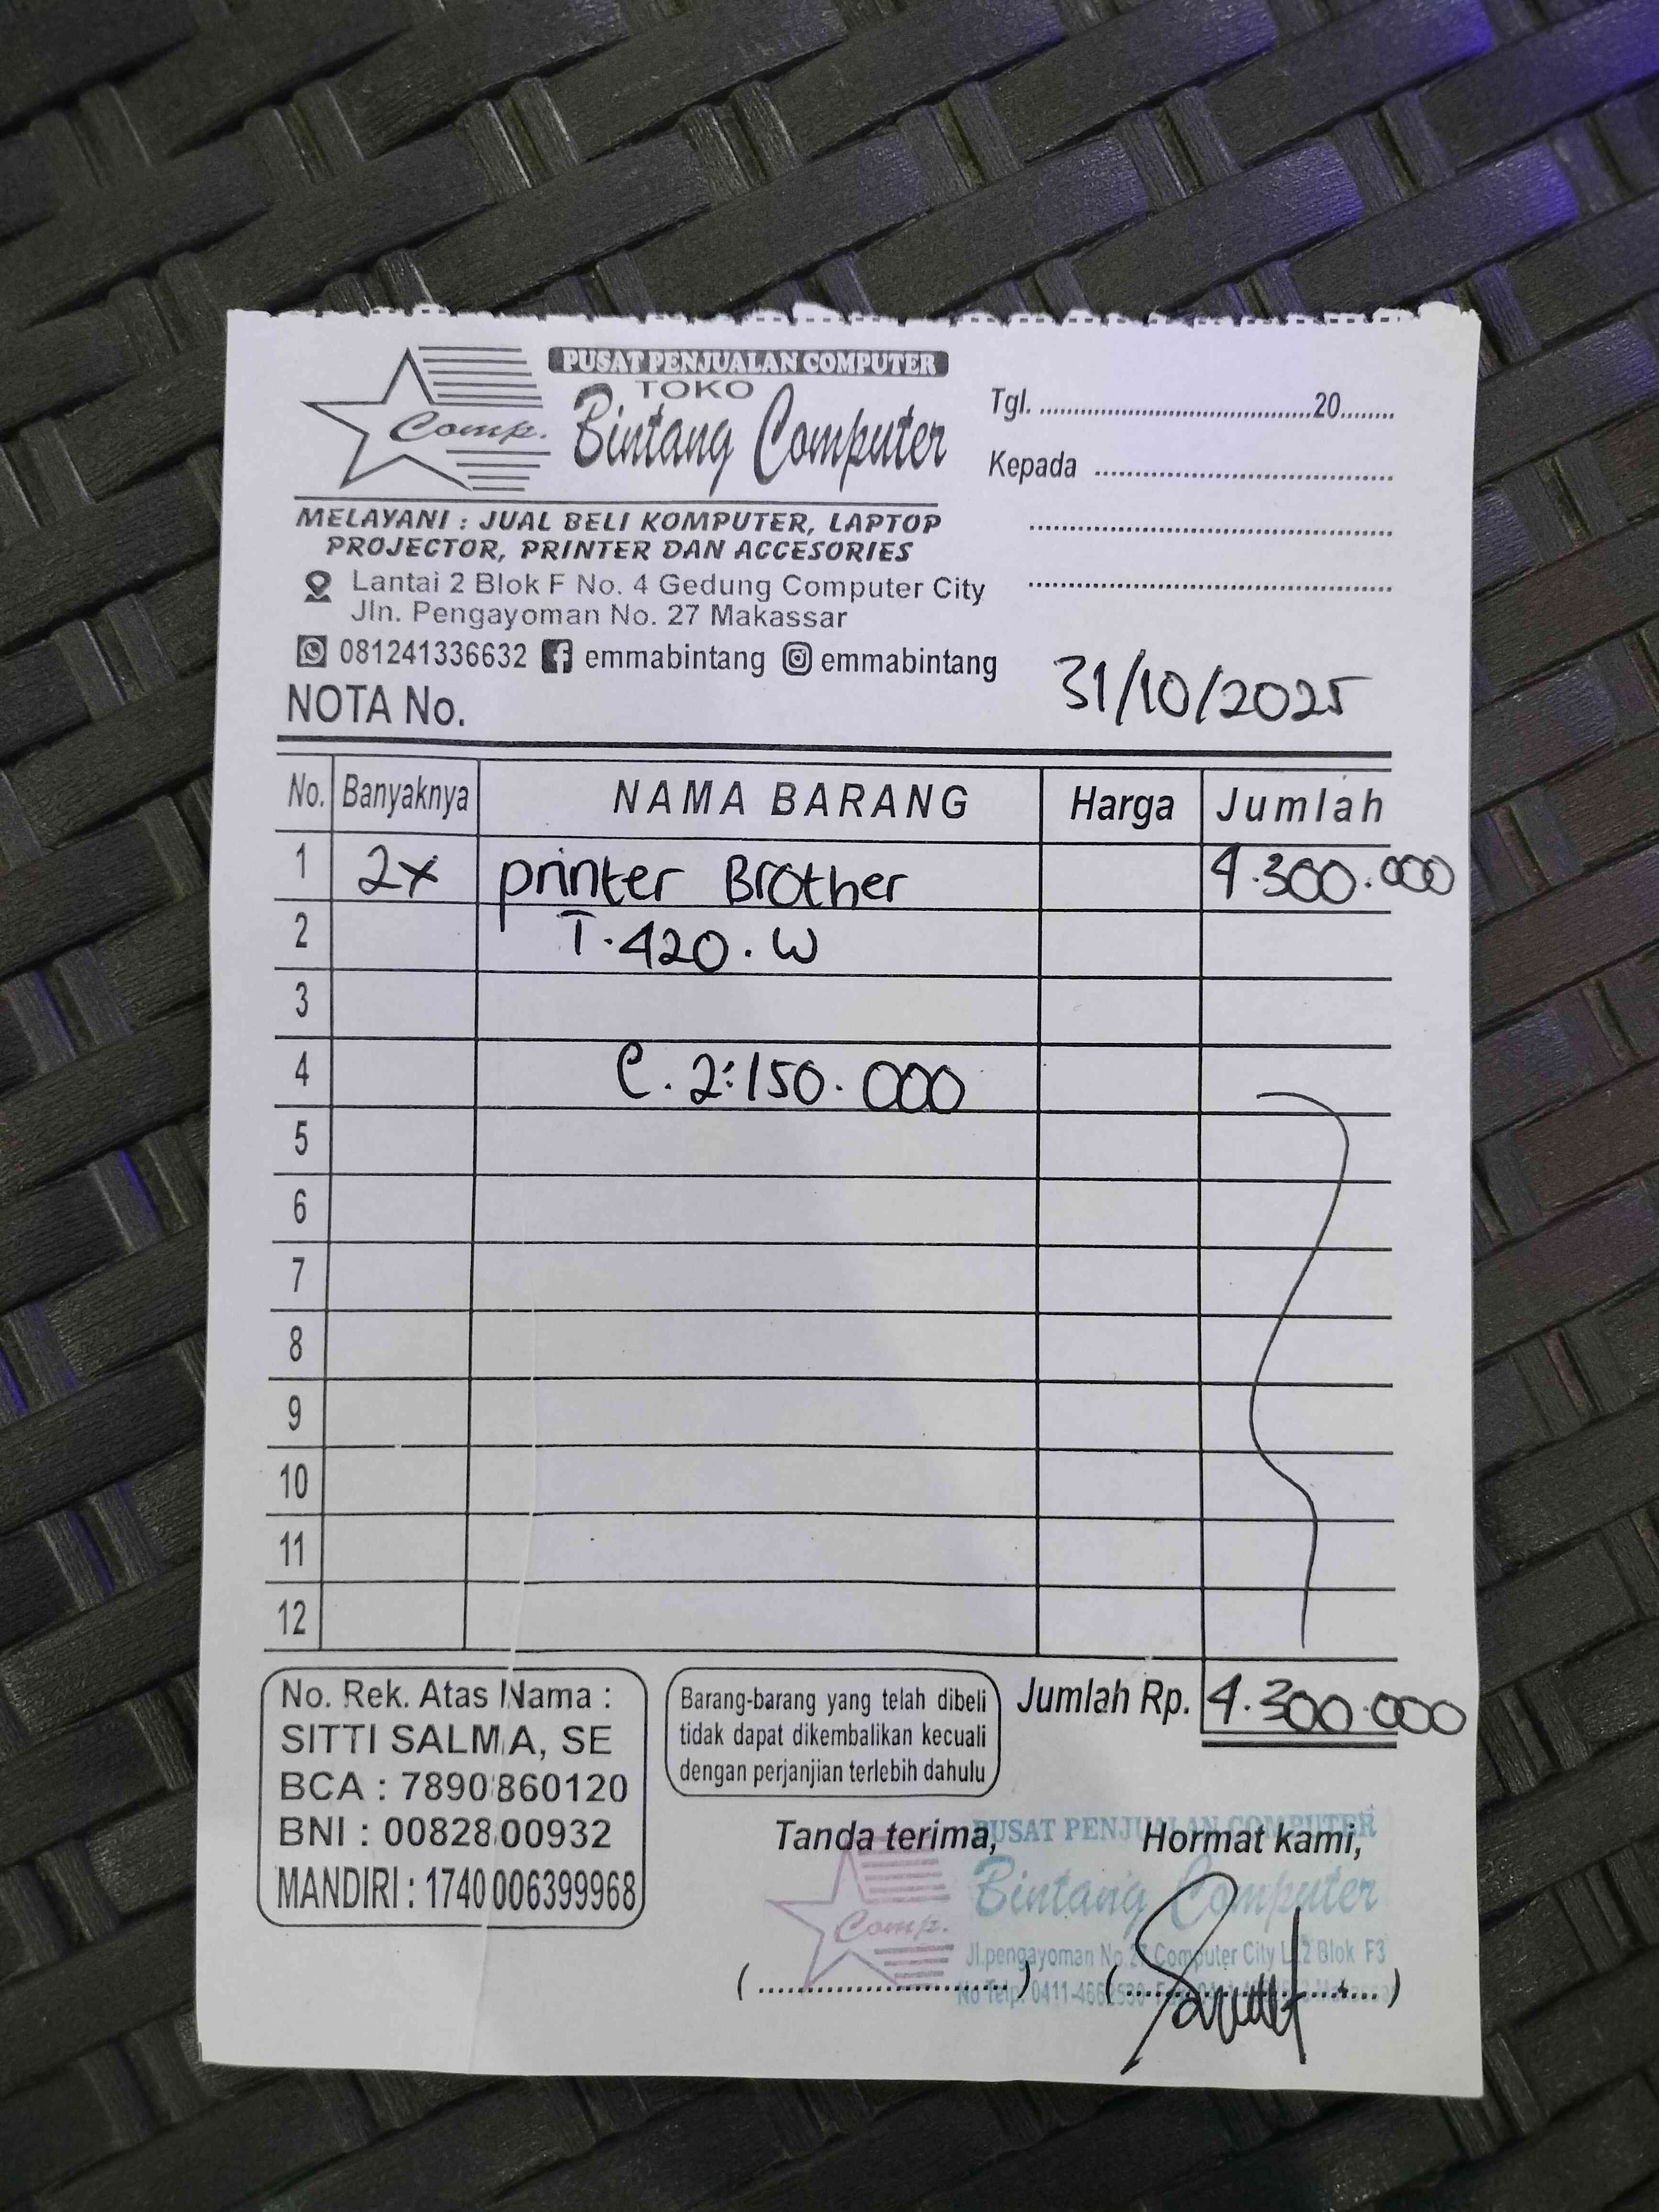 PUSAT PENJUALAN COMPUTER
TOKO
Comp.
Bintang Computer
MELAYANI : JUAL BELI KOMPUTER, LAPTOP
PROJECTOR, PRINTER DAN ACCESORIES
Lantai 2 Blok F No. 4 Gedung Computer City
Jln. Pengayoman No. 27 Makassar
081241336632 emmabintang emmabintang
NOTA No.
Tgl. ........................................20........
Kepada ............................................
31/10/2025
No. Banyaknya NAMA BARANG Harga Jumlah
1 2x printer Brother 4.300.000
2 T.420.W
3
4 @. 2.150.000
5
6
7
8
9
10
11
12
Jumlah Rp. 4.300.000
No. Rek. Atas Nama :
SITTI SALMA, SE
BCA : 7890860120
BNI : 0082800932
MANDIRI : 1740006399968
Barang-barang yang telah dibeli
tidak dapat dikembalikan kecuali
dengan perjanjian terlebih dahulu
Tanda terima,
Hormat kami,
PUSAT PENJUALAN COMPUTER
Comp.
Bintang Computer
Jl.pengayoman No.27 Computer City Lt.2 Blok F3
No Telp. 0411-